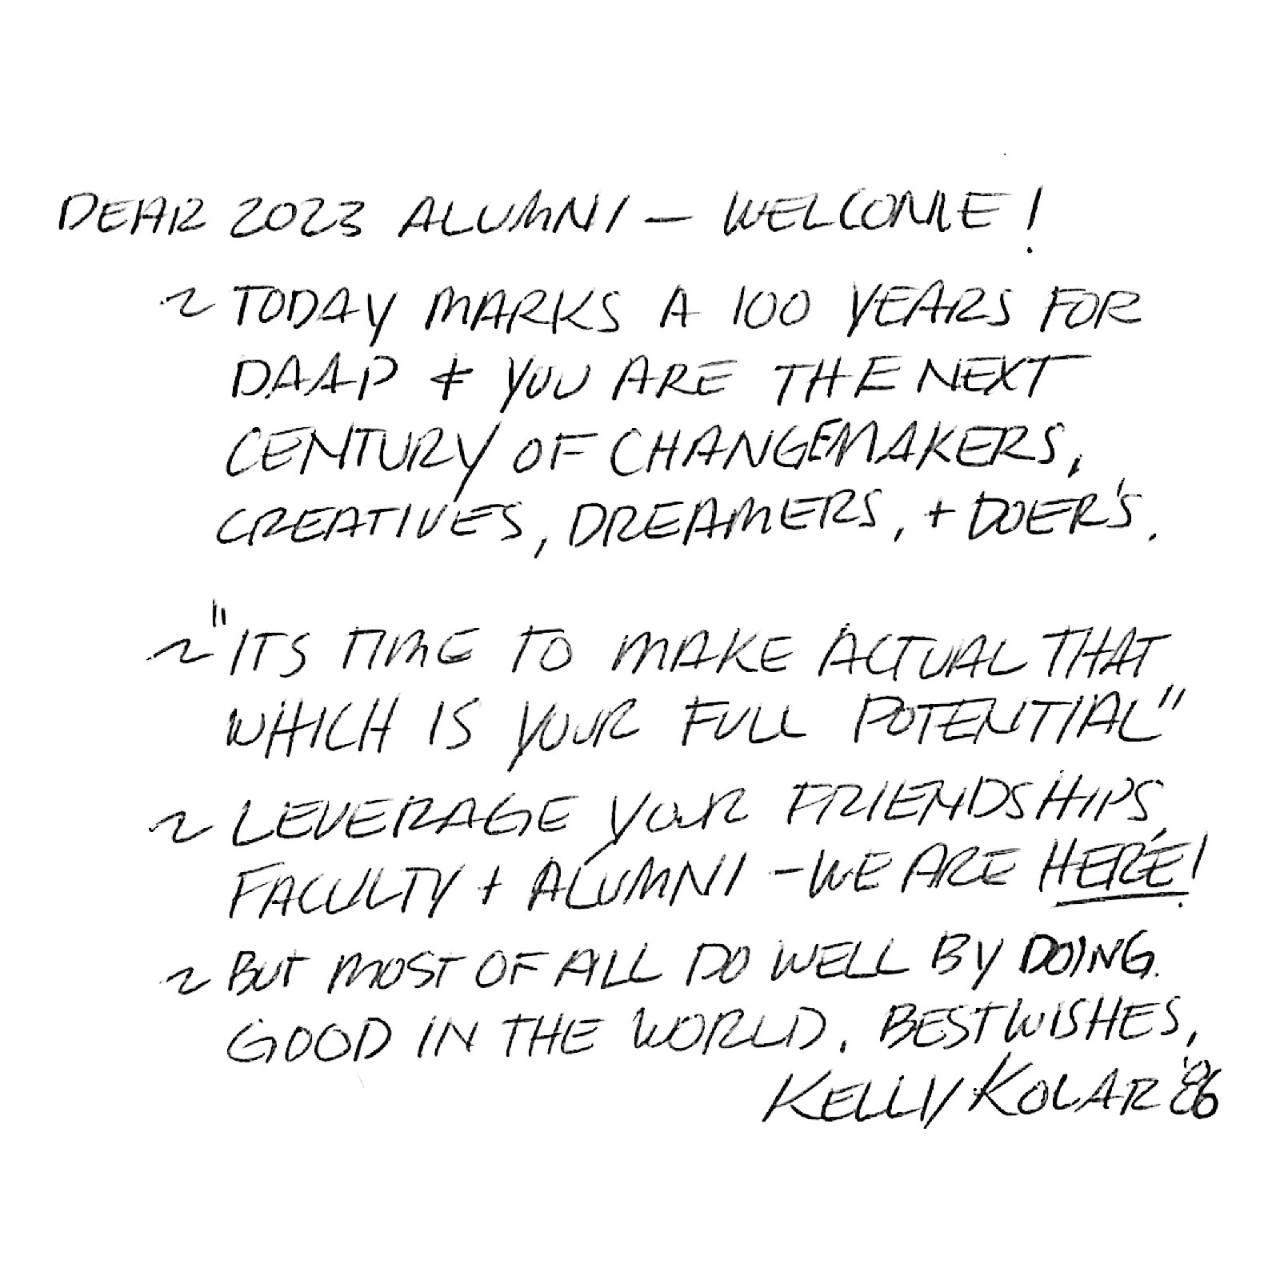 DEAR 2023 ALUMNI — WELCOME!
~ TODAY MARKS A 100 YEARS FOR
DAAP & YOU ARE THE NEXT
CENTURY OF CHANGEMAKERS,
CREATIVES, DREAMERS, + DOER'S.
~ "ITS TIME TO MAKE ACTUAL THAT
WHICH IS YOUR FULL POTENTIAL"
~ LEVERAGE YOUR FRIENDSHIPS,
FACULTY + ALUMNI - WE ARE HERE!
~ BUT MOST OF ALL DO WELL BY DOING
GOOD IN THE WORLD. BEST WISHES,
KELLY KOLAR '86